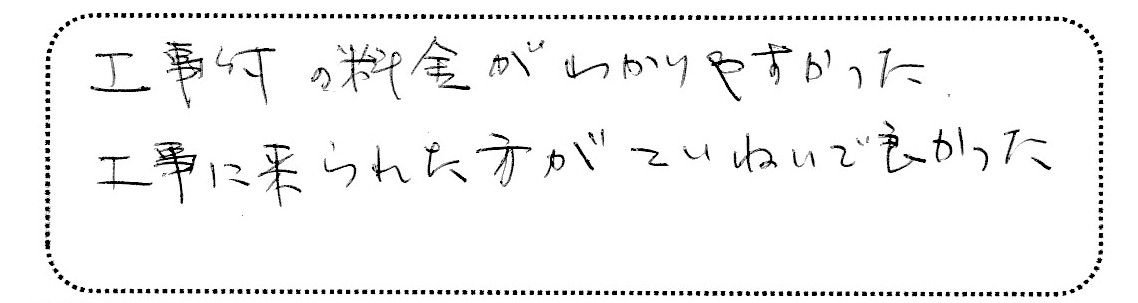 工事付の料金がわかりやすかった
工事に来られた方がていねいで良かった